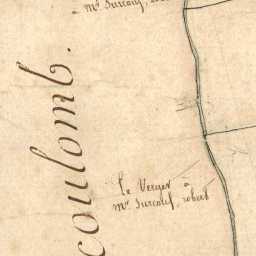 mr Surcouf, 
coulomb.
Le Verger à
mr Surcouf, robert